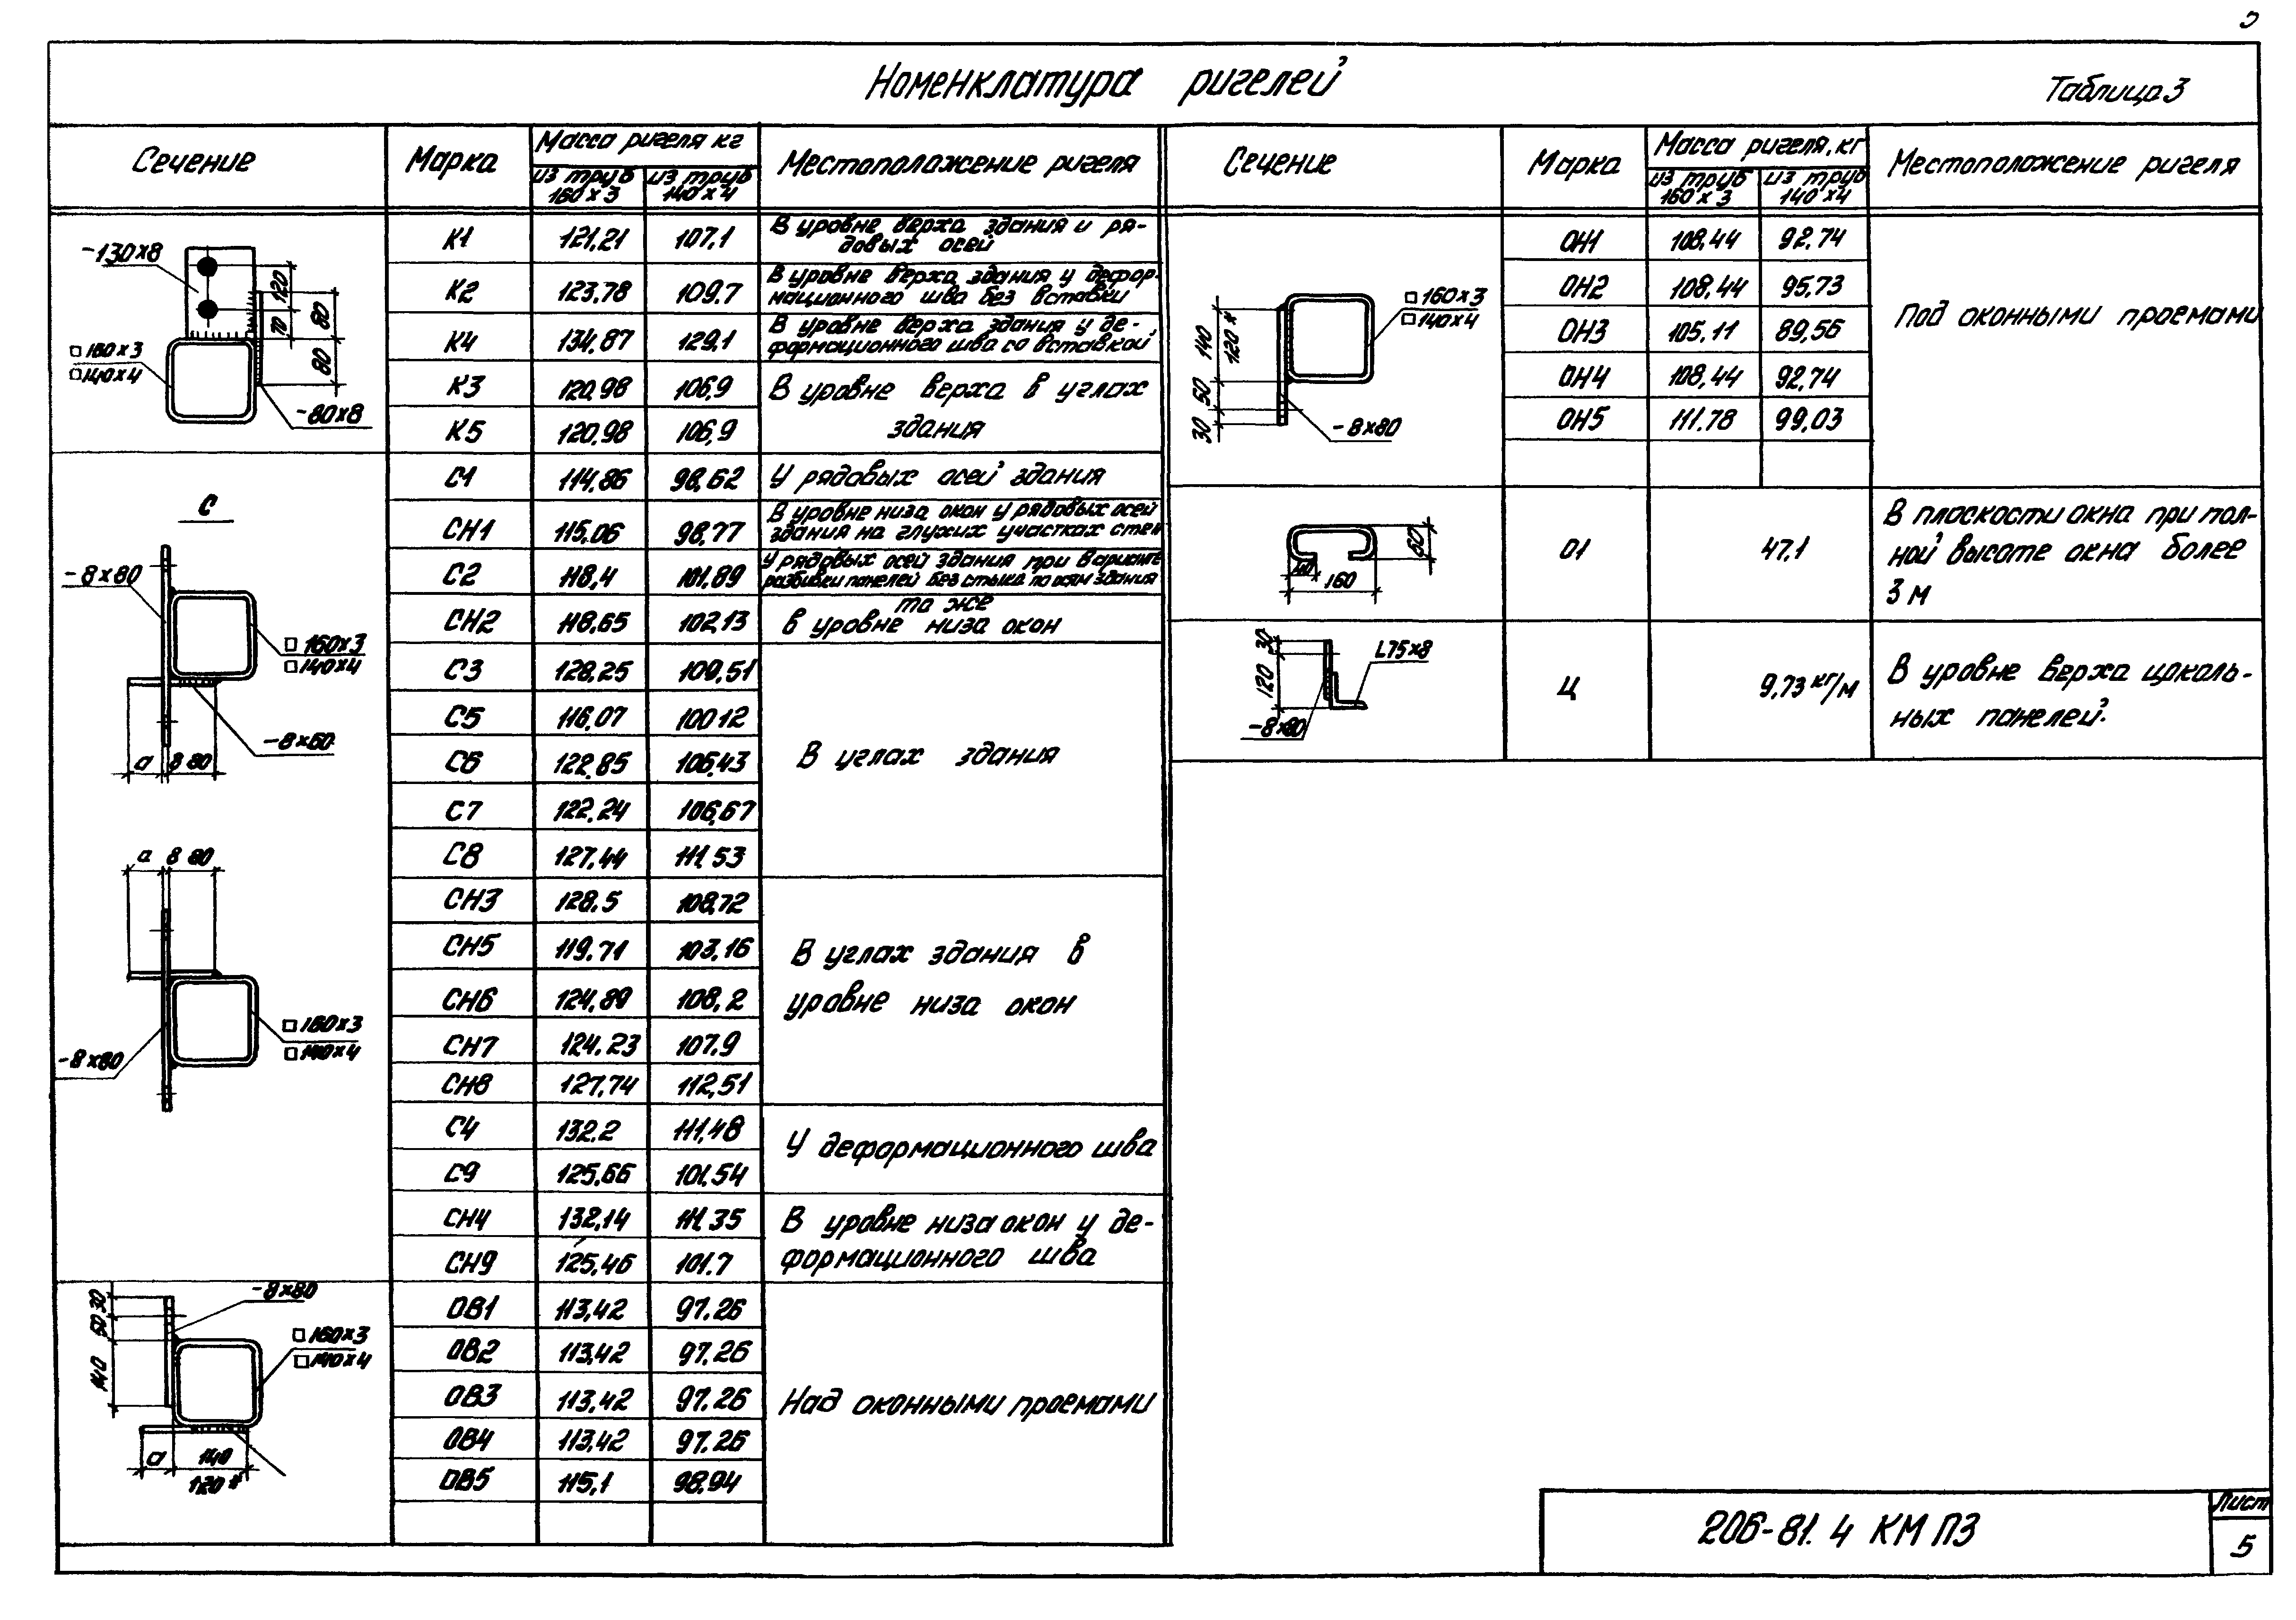 Номенклатура ригелей
Таблица 3
Сечение
Марка
Масса ригеля кг
из труб 160×3
из труб 140×4
Местоположение ригеля
К1 121,21 107,1 В уровне верха здания и ря-
довых осей
К2 123,78 109,7 В уровне верха здания у дефор-
мационного шва без вставки
К4 134,87 129,1 В уровне верха здания у де-
формационного шва со вставкой
К3 120,98 106,9 В уровне верха в углах
К5 120,98 106,9 здания
С1 114,86 98,62 У рядовых осей здания
СН1 115,06 98,77 В уровне низа окон у рядовых осей
здания на глухих участках стен
С2 118,4 101,89 У рядовых осей здания при варианте
разбивки панелей без стыка по осям здания
СН2 118,65 102,13 то же
в уровне низа окон
С3 128,25 109,51
С5 116,07 100 12
С6 122,85 106,43 В углах здания
С7 122,24 106,67
С8 127,44 111,53
СН3 128,5 108,72
СН5 119,71 103,16 В углах здания в
СН6 124,89 108,2 уровне низа окон
СН7 124,23 107,9
СН8 127,74 112,51
С4 132,2 111,48 У деформационного шва
С9 125,66 101,54
СН4 132,14 111,35 В уровне низа окон у де-
СН9 125,46 101.7 формационного шва
ОВ1 113,42 97.26
ОВ2 113,42 97.26
ОВ3 113,42 97.26 Над оконными проемами
ОВ4 113,42 97.26
ОВ5 115,1 98,94
-130×8
120
70
80
80
□160×3
□140×4
-80×8
С
-8×80
□160×3
□140×4
-8×60
а 8 80
а 8 80
□160×3
□140×4
-8×80
-8×80
30
50
140
□160×3
□140×4
а 140
120*
Сечение
Марка
Масса ригеля, кг
из труб 160×3
из труб 140×4
Местоположение ригеля
ОН1 108,44 92,74
ОН2 108,44 95,73
ОН3 105,11 89,56 Под оконными проемами
ОН4 108,44 92,74
ОН5 111.78 99,03
□160×3
□140×4
140
120*
50
30
-8×80
О1 47.1 В плоскости окна при пол-
ной высоте окна более
3 м
60
160
Ц 9,73 кг/м В уровне верха цоколь-
ных панелей.
30
120
L75×8
-8×80
206-81.4 КМ ПЗ
Лист
5